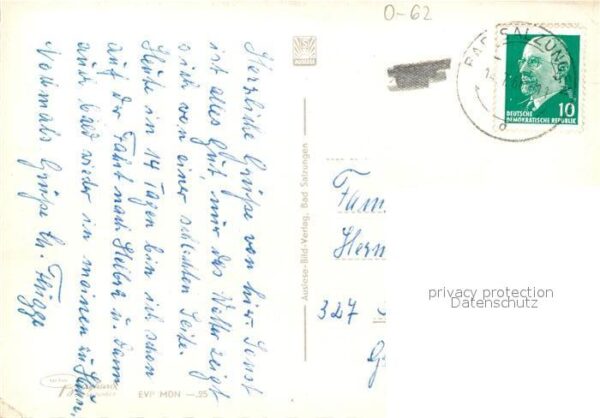 O-62
BAD SALZUNGEN
DEUTSCHE
DEMOKRATISCHE REPUBLIK
10
Herzliche Grüße von hier. Sonst
ist alles gut, nur das Wetter zeigt
sich von einer schlechten Seite.
Heute in 14 Tagen bin ich schon
auf der Fahrt nach u. dann
auch bald wieder in meinem
Nochmals Grüße
Auslese-Bild-Verlag, Bad Salzungen
EVP MDN —.25
Fam
Herm
327
privacy protection
Datenschutz